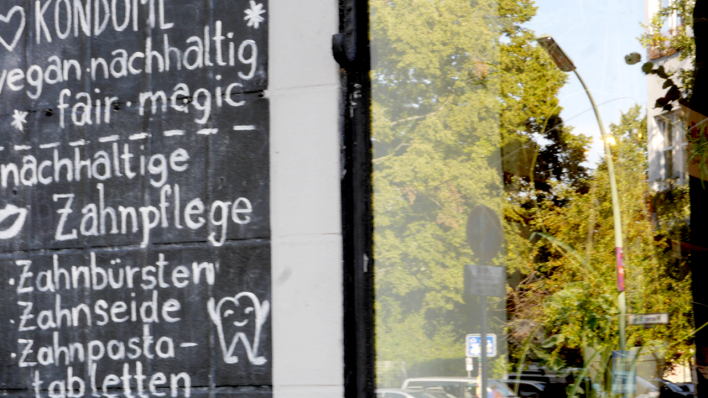 KONDOME
vegan·nachhaltig
fair·magic
nachhaltige
Zahnpflege
·Zahnbürsten
·Zahnseide
·Zahnpasta-
tabletten